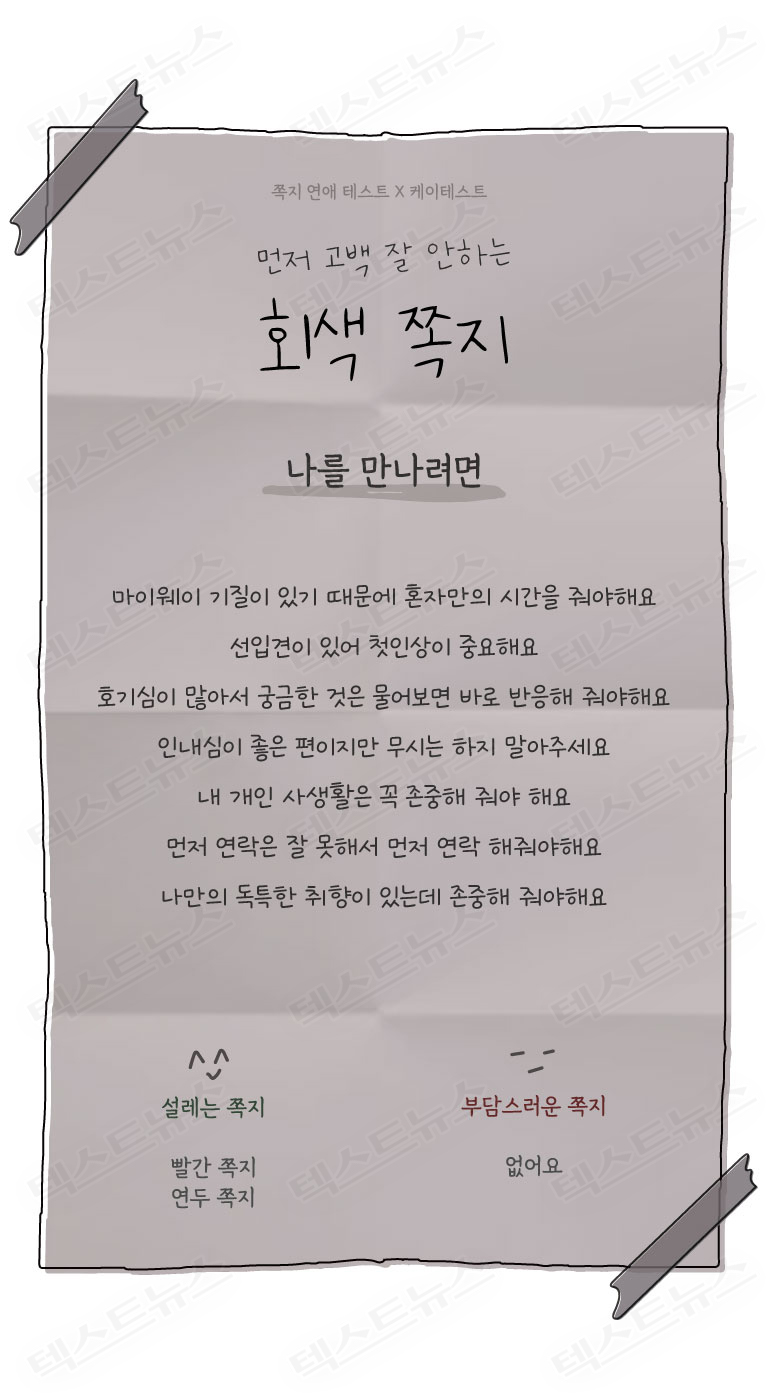 쪽지 연애 테스트 X 케이테스트
먼저 고백 잘 안하는
회색 쪽지
나를 만나려면
마이웨이 기질이 있기 때문에 혼자만의 시간을 줘야해요
선입견이 있어 첫인상이 중요해요
호기심이 많아서 궁금한 것은 물어보면 바로 반응해 줘야해요
인내심이 좋은 편이지만 무시는 하지 말아주세요
내 개인 사생활은 꼭 존중해 줘야 해요
먼저 연락은 잘 못해서 먼저 연락 해줘야해요
나만의 독특한 취향이 있는데 존중해 줘야해요
설레는 쪽지
빨간 쪽지
연두 쪽지
부담스러운 쪽지
없어요
텍스트뉴스